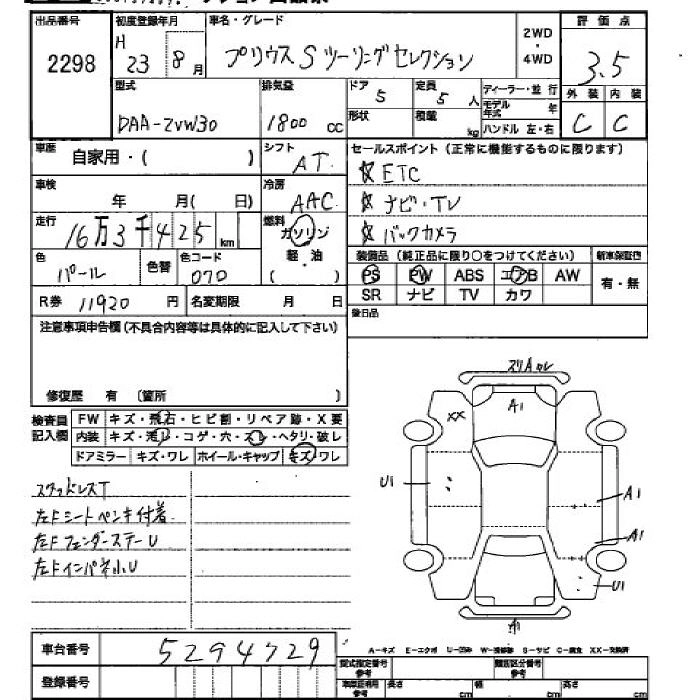 出品番号 初度登録年月 車名・グレード 2WD・4WD 評価点
2298 H 23 8月 プリウス S ツーリングセレクション 3.5
型式 排気量 ドア 定員 ディーラー・並行 外装 内装
DAA-ZVW30 1800 cc 5 5人 モデル年式 年 C C
形状 積載 kg ハンドル 左・右
車歴 自家用・( ) シフト AT セールスポイント (正常に機能するものに限ります)
☆ ETC
車検 年 月( 日) 冷房 AAC ☆ ナビ・TV
走行 16万3千425km 燃料 ガソリン ☆ バックカメラ
軽・油
( )
色 パール 色替 色コード 070 装備品 (純正品に限り○をつけてください) 新車保証書
PS PW ABS エアB AW 有・無
R券 11920 円 名変期限 月 日 SR ナビ TV カワ
注意事項申告欄 (不具合内容等は具体的に記入して下さい) 後日品
修復歴 有 〔箇所 〕
検査員記入欄 FW キズ・飛石・ヒビ割・リペア跡・X要
内装 キズ・汚レ・コゲ・穴・スレ・ヘタリ・破レ
ドアミラー キズ・ワレ ホイール・キャップ キズ・ワレ
スリ A ワレ
A1
XX
U1
A1
A1
U1
A1
スタッドレスT
左Fシートペンキ付着
左Fフェンダーステー U
左Fインパネ小U
車台番号 5294729
登録番号
A-キズ E-エクボ U-凹み W-補修跡 S-サビ C-腐食 XX-交換済
型式指定番号 参考 類別区分番号 参考
長さ cm 幅 cm 高さ cm